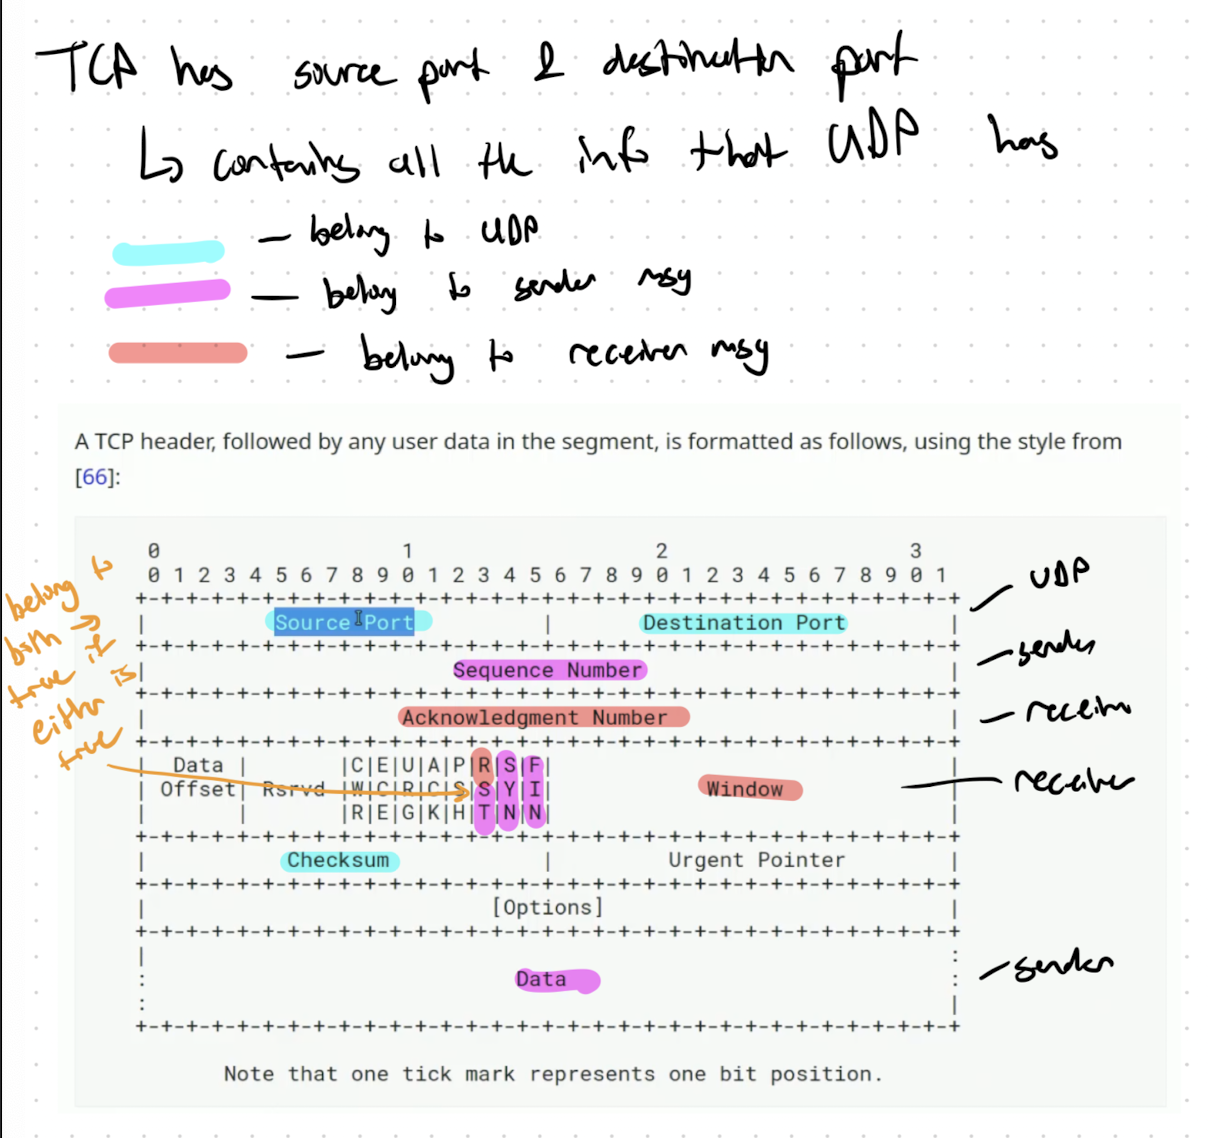 TCP has source port & destination port
↳ contains all the info that UDP has
— belong to UDP
— belong to sender msg
— belong to receiver msg
A TCP header, followed by any user data in the segment, is formatted as follows, using the style from
[66]:
0                   1                   2                   3
0 1 2 3 4 5 6 7 8 9 0 1 2 3 4 5 6 7 8 9 0 1 2 3 4 5 6 7 8 9 0 1
+-+-+-+-+-+-+-+-+-+-+-+-+-+-+-+-+-+-+-+-+-+-+-+-+-+-+-+-+-+-+-+-+
|          Source Port          |       Destination Port        | UDP
+-+-+-+-+-+-+-+-+-+-+-+-+-+-+-+-+-+-+-+-+-+-+-+-+-+-+-+-+-+-+-+-+
|                        Sequence Number                        | — sender
+-+-+-+-+-+-+-+-+-+-+-+-+-+-+-+-+-+-+-+-+-+-+-+-+-+-+-+-+-+-+-+-+
|                    Acknowledgment Number                      | — receiver
+-+-+-+-+-+-+-+-+-+-+-+-+-+-+-+-+-+-+-+-+-+-+-+-+-+-+-+-+-+-+-+-+
|  Data |       |C|E|U|A|P|R|S|F|                               |
| Offset| Rsrvd |W|C|R|C|S|S|Y|I|            Window             | — receiver
|       |       |R|E|G|K|H|T|N|N|                               |
+-+-+-+-+-+-+-+-+-+-+-+-+-+-+-+-+-+-+-+-+-+-+-+-+-+-+-+-+-+-+-+-+
|           Checksum            |         Urgent Pointer        |
+-+-+-+-+-+-+-+-+-+-+-+-+-+-+-+-+-+-+-+-+-+-+-+-+-+-+-+-+-+-+-+-+
|                           [Options]                           |
+-+-+-+-+-+-+-+-+-+-+-+-+-+-+-+-+-+-+-+-+-+-+-+-+-+-+-+-+-+-+-+-+
|                                                               :
:                             Data                              : — sender
:                                                               |
+-+-+-+-+-+-+-+-+-+-+-+-+-+-+-+-+-+-+-+-+-+-+-+-+-+-+-+-+-+-+-+-+
Note that one tick mark represents one bit position.
belong to
both →
true if
either is
true